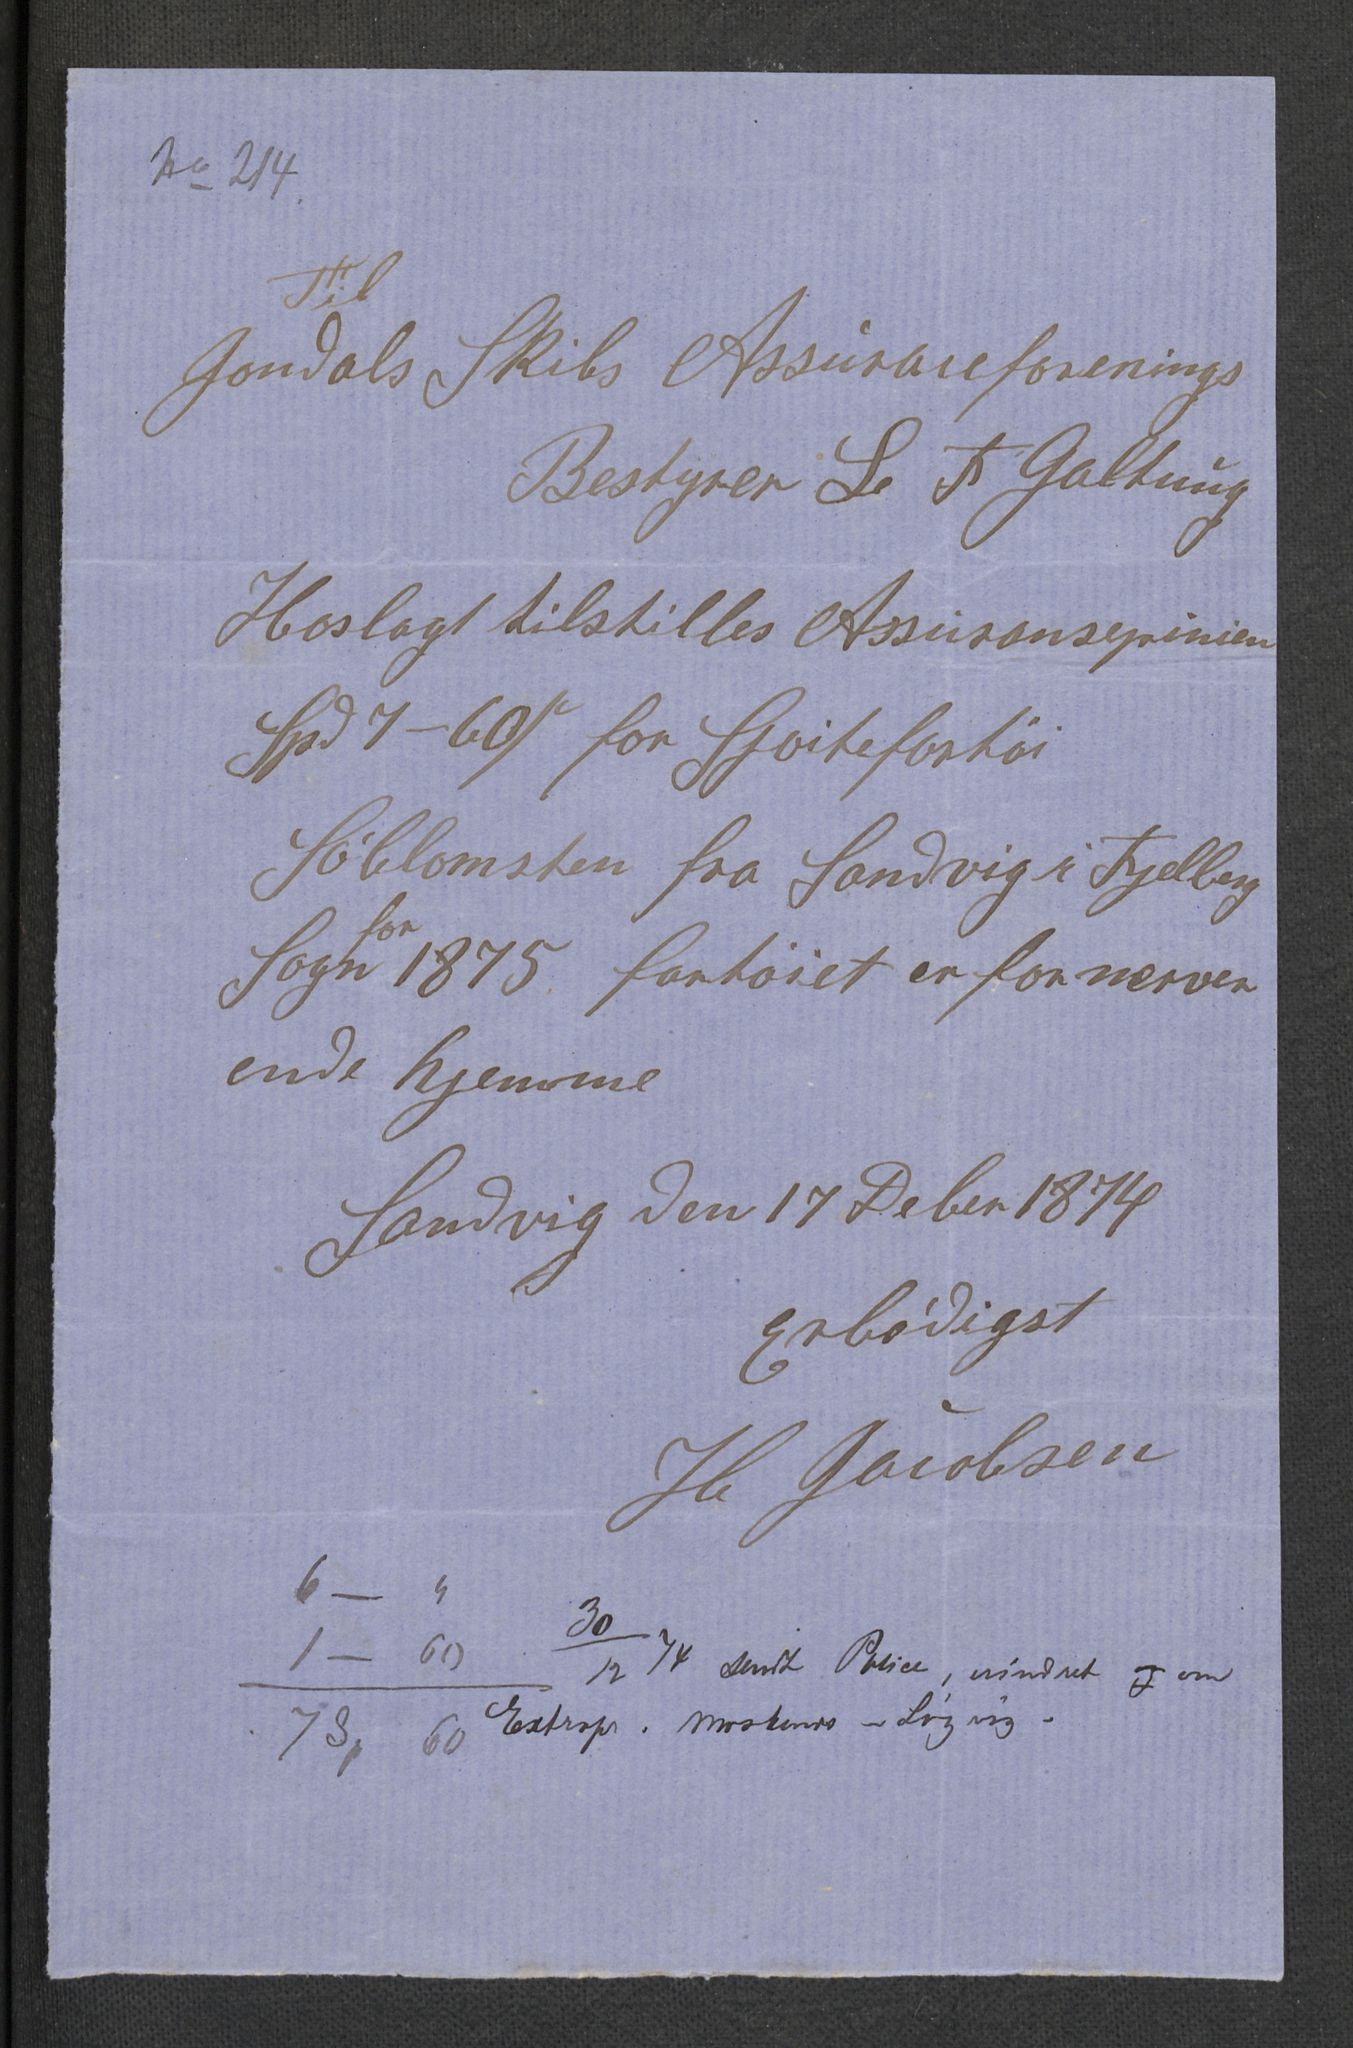 No 214.
Til
Jondals Skibs Assuraceforenings
Bestyrer L F Galtung
Hoslagt tilstilles Assuransepinien
Spd 7-60 for Sjoitefortøi
Søblomsten fra Sandvig i Fjelberg
Sogn for 1875 fartøiet er for nerver
ende hjemme
Sandvig den 17 Deber 1874
Erbødigst
H Jacobsen
6 — "
1 — 60
7 Sp 60
30/12 74 sendt Police, erindret om
Extrapr. Moskenes -